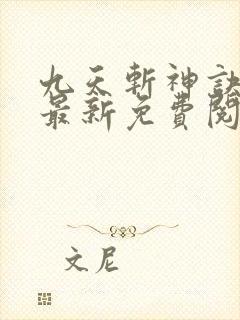 九天斬神訣
最新免費閱
文尼